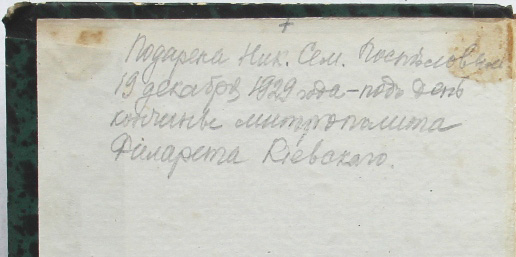 †
Подарена Ник. Сем. Поспѣловым
19 декабря 1929 года – подъ день
кончины митрополита
Филарета Кіевскаго.